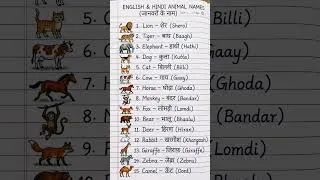 ENGLISH & HINDI ANIMAL NAMES
(जानवरों के नाम)
1. Lion - शेर (Shero)
2. Tiger - बाघ (Baagh)
3. Elephant - हाथी (Hathi)
4. Dog - कुत्ता (Kutta)
5. Cat - बिल्ली (Billi)
6. Cow - गाय (Gaay)
7. Horse - घोड़ा (Ghoda)
8. Monkey - बंदर (Bandar)
9. Fox - लोमड़ी (Lomdi)
10. Bear - भालू (Bhaalu)
11. Deer - हिरण (Hiran)
12. Rabbit - खरगोश (Khargosh)
13. Giraffe - जिराफ़ (Giraffe)
14. Zebra - ज़ेब्रा (Zebra)
15. Camel - ऊँट (Oont)